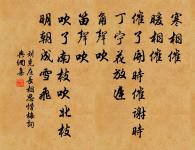 寒相催
暖相催
催了開時催謝時
丁寧花放遲
角聲吹
笛聲吹
吹了南枝吹北枝
明朝成雪飛
刘克庄長相思惜梅詞